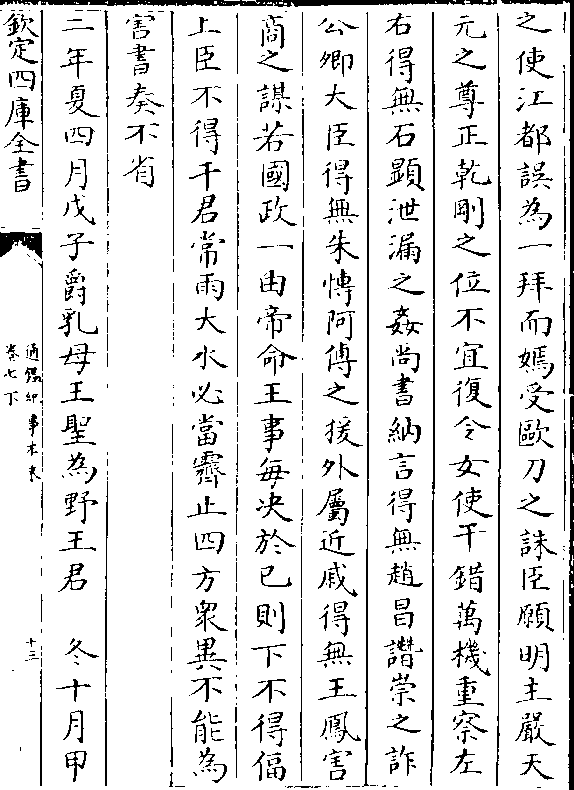 之使江都誤為一拜而嫣受歐刀之誅臣願明主嚴天
元之尊正乾剛之位不宜復令女使干錯萬機重察左
右得無石顯泄漏之姦尚書納言得無趙昌譖崇之詐
公卿大臣得無朱慱阿傅之援外屬近戚得無王鳳害
商之謀若國政一由帝命王事每决於已則下不得偪
上臣不得干君常雨大水必當霽止四方衆異不能為
害書奏不省
三年夏四月戊子爵乳母王聖為野王君　冬十月甲
欽定四庫全書
通鑑紀事本末
卷七下
十三